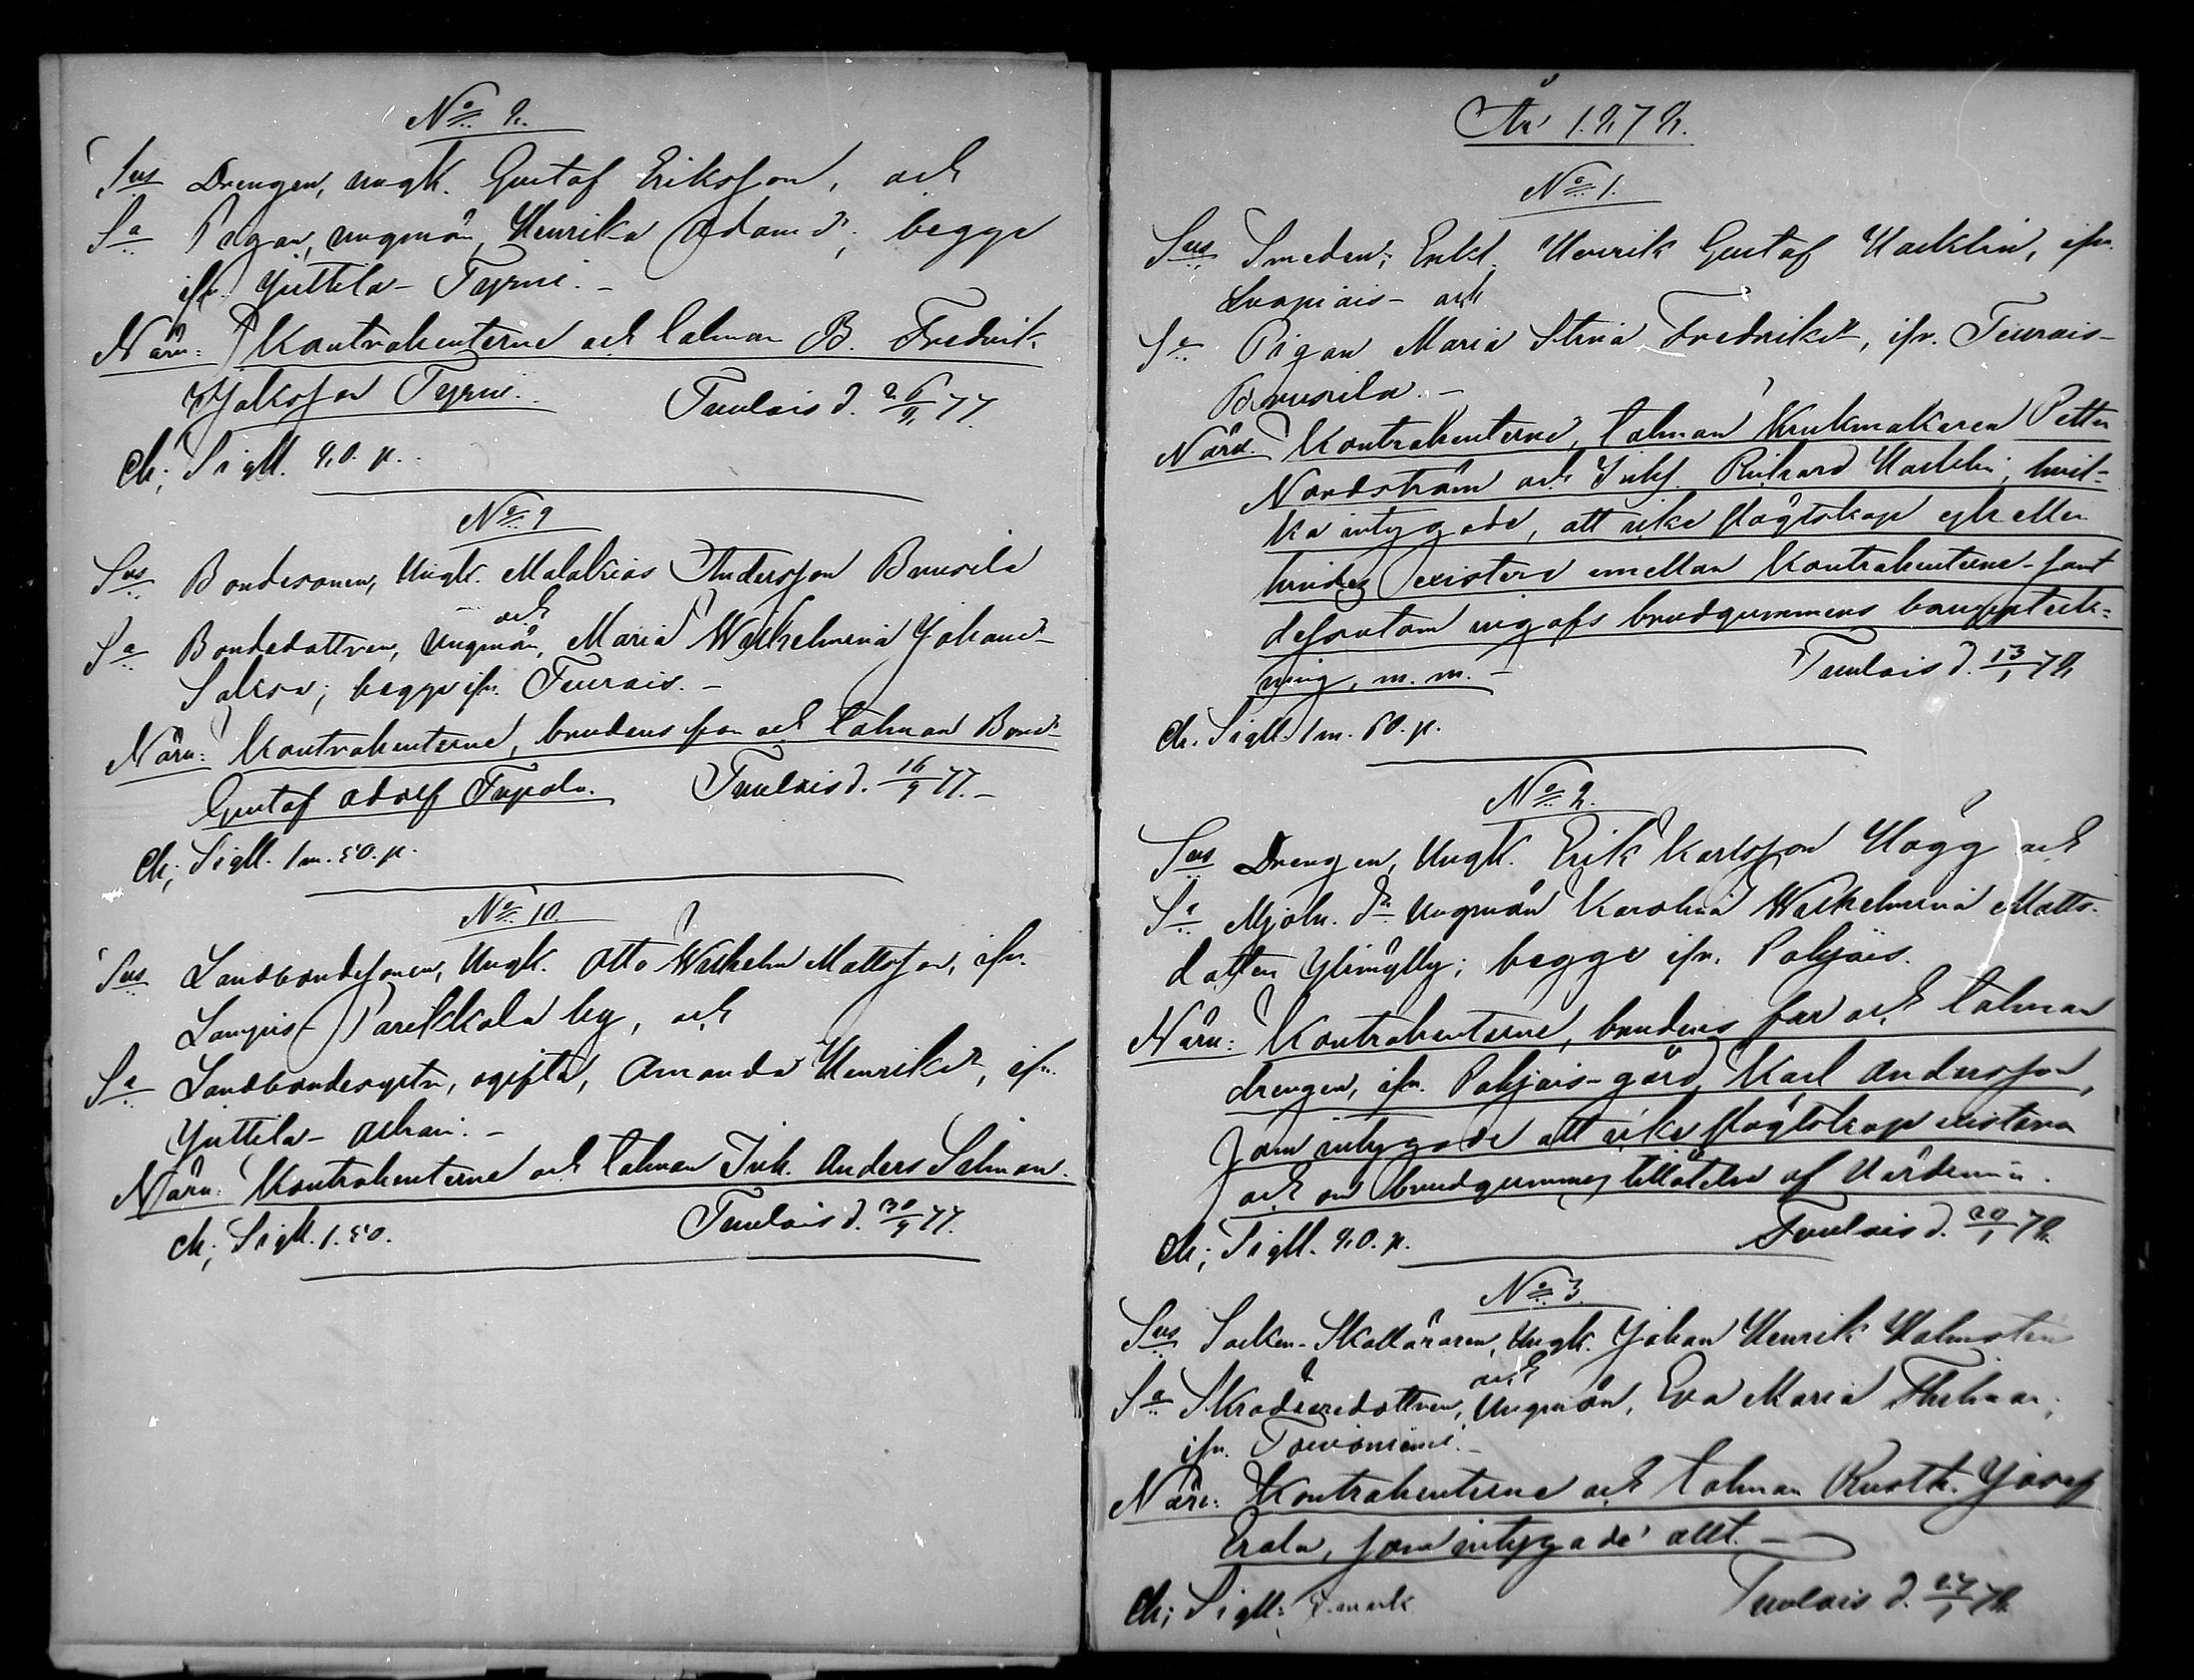 No 8.
Sus Drengen, ungk. Gustaf Eriksson, och
Sa Pigan, ungmön, Henrika Adamsdr; begge
ifr. Juttila-Tyrni.-
Närv: Kontrahenterne och talman B. Fredrik
Jaksson Tyrni. Tuulois d. 26/8 77.
Ch; Sigill. 80. p.
No 9
Sus Bondesonen, Ungk. Malakias Andersson Bruusila
och
Sa Bondedottren, Ungmön, Maria Wilhelmina Johansdr
; begge ifr. Teurois.-
Närv: Kontrahenterne, brudens far och talman Bond.
Gustaf Adolf . Tuulois d. 16/9 77.-
Ch; Sigill. 1 m. 50. p.
No 10.
Sus Landbondesonen, Ungk. Otto Wilhelm Mattsson, ifr.
Lampis-Parikkala by, och
Sa Landbondesystr, ogifta, Amanda Henriksdr, ifr.
Juttila-.-
Närv. Kontrahenterne och talman Inh. Anders Salman.
Ch; Sigill. 1.50. Tuulois d. 30/9 77.
År 1878.
No 1.
Sus Smeden; Enkl. Henrik Gustaf Hacklin, ifr.
Luopiois- och
Sa Pigan Maria Stina Fredriksdr, ifr. Teurois-
Bruusila.-
Närv. Kontrahenterne, talman Krukmakaren Petter
Nordström och Inhs. Rickard Hacklin, hvil-
ka intygade, att icke slägtskap ej heller
hinder existera emellan Kontrahenterne - samt
dessutom uppgafs brudgummens bouppteck-
ning, m. m.- Tuulois d. 13/1 78
Ch. Sigill. 1 m. 60. p.
No 2.
Sus Drengen, Ungk. Erik Karlsson Hägg och
Sa Mjöln. dr Ungmön Karolina Wilhelmina Matts-
dotter Ylimylly; begge ifr. Pohjois.
Närv: Kontrahenterne, brudens far och talman
drengen, ifr. Pohjois-gård Karl Andersson,
som intygade att icke slägtskap existera
och om brudgummes tillåtelse af Värdinnan.
Ch; Sigill. 80. p. Tuulois d. 20/1 78.
No 3.
Sus Socken-Skolläraren, Ungk. Johan Henrik Holmsten
och
Sa Skräddaredottren, Ungmön, Eva Maria Thelman;
ifr. Toivoniemi.-
Närv: Kontrahenterne och talman Rusth. Josef
Erola, som intygade allt.-
Ch; Sigill: mark Tuulois d. 27/1 78.